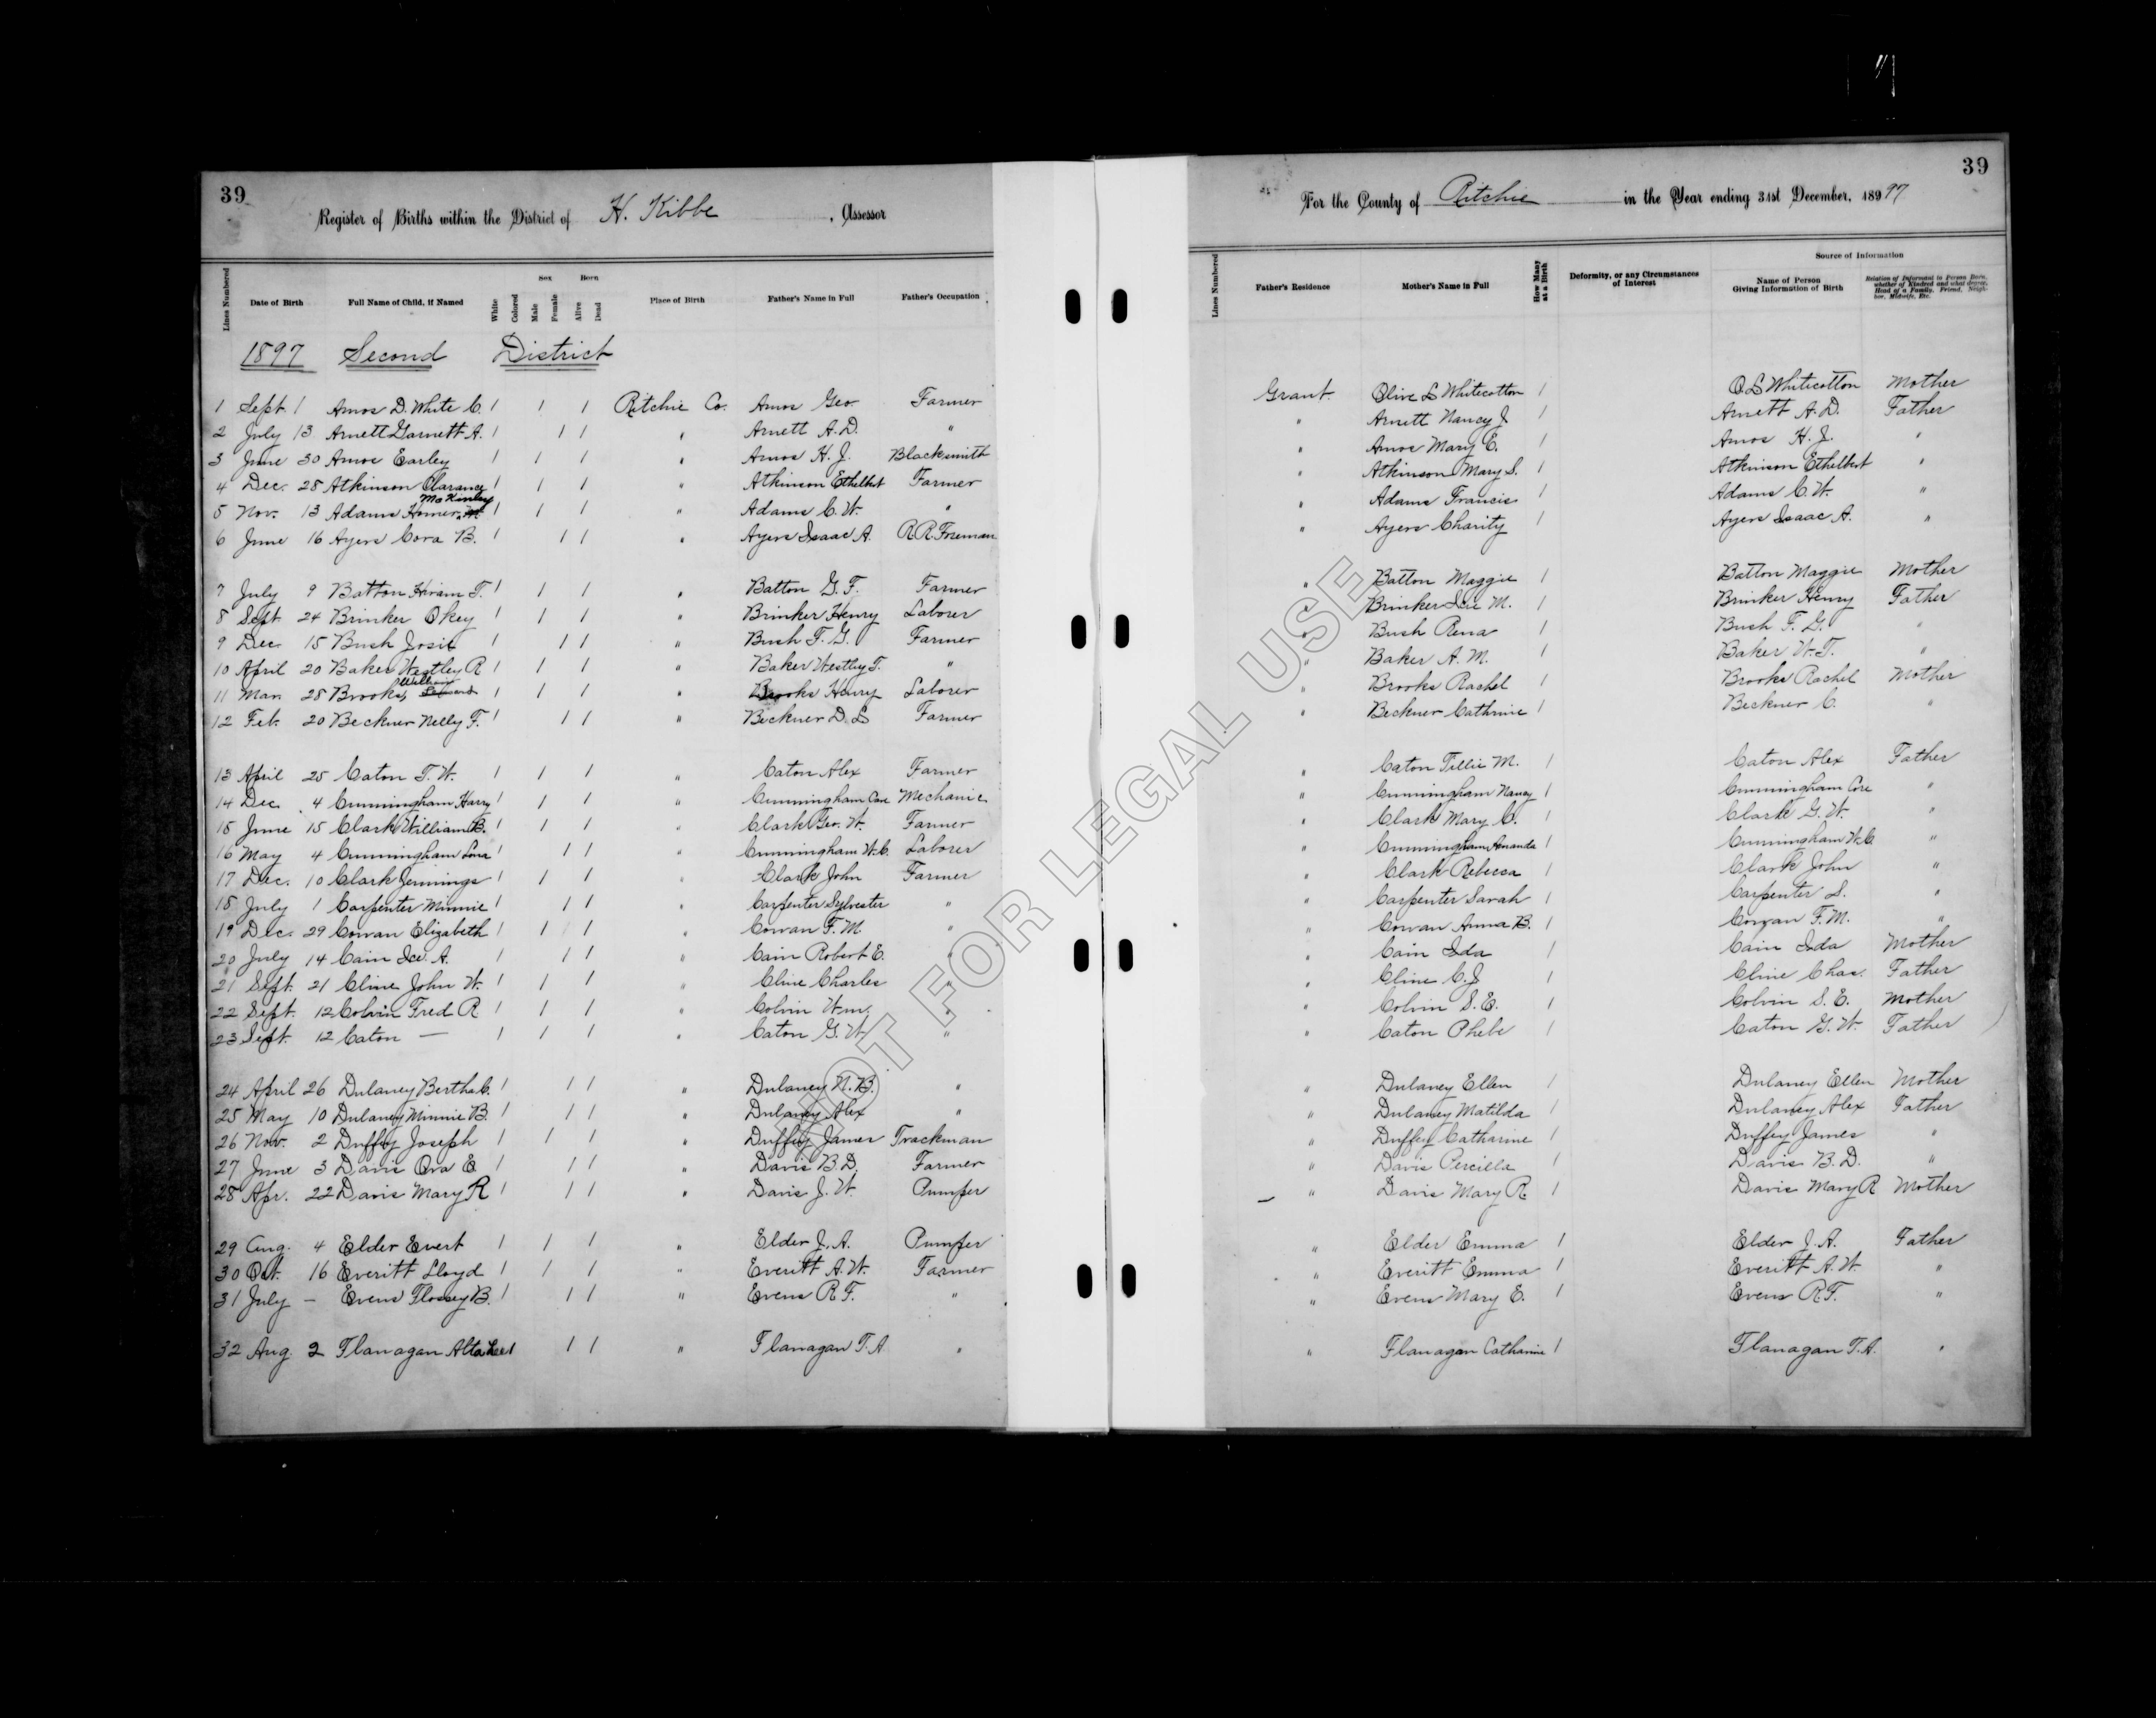 39
Register of Births within the District of H. Kibbe, Assessor
Lines Numbered Date of Birth Full Name of Child, if Named White Colored Sex Male Female Born Alive Dead Place of Birth Father's Name in Full Father's Occupation
1897 Second District
1 Sept. 1 Amos D. White C. 1 1 1 Ritchie Co. Amos Geo. Farmer
2 July 13 Arnett Garnett A. 1 1 1 " Arnett A. D. "
3 June 30 Amos Earley 1 1 1 " Amos H. J. Blacksmith
4 Dec. 28 Atkinson Clarance 1 1 1 " Atkinson Ethelbert Farmer
McKinley
5 Nov. 13 Adams Homer 1 1 1 " Adams C. W. "
6 June 16 Ayers Cora B. 1 1 1 " Ayers Isaac A. R.R. Foreman
7 July 9 Batton Hiram T. 1 1 1 " Batton G. F. Farmer
8 Sept 24 Brinker Okey 1 1 1 " Brinker Henry Laborer
9 Dec. 15 Bush Josie 1 1 1 " Bush F. G. Farmer
10 April 20 Baker Westley R 1 1 1 " Baker Westley T. "
William
11 Mar. 28 Brooks, 1 1 1 " Brooks Henry Laborer
12 Feb. 20 Beckner Nelly F. 1 1 1 " Beckner D. L Farmer
13 April 25 Caton T. W. 1 1 1 " Caton Alex Farmer
14 Dec. 4 Cunningham Harry 1 1 1 " Cunningham Core Mechanic
15 June 15 Clark William B. 1 1 1 " Clark Geo. W. Farmer
16 May 4 Cunningham Lona 1 1 1 " Cunningham W. C. Laborer
17 Dec. 10 Clark Jennings 1 1 1 " Clark John Farmer
18 July 1 Carpenter Minnie 1 1 1 " Carpenter Sylvester "
19 Dec. 29 Cowan Elizabeth 1 1 1 " Cowan F. M. "
20 July 14 Cain Ice. A. 1 1 1 " Cain Robert E. "
21 Sept. 21 Cline John W. 1 1 1 " Cline Charles "
22 Sept. 12 Colvin Fred R 1 1 1 " Colvin Wm. "
23 Sept. 12 Caton — 1 1 1 " Caton G. W. "
24 April 26 Dulaney Bertha C. 1 1 1 " Dulaney N. B. "
25 May 10 Dulaney Minnie B. 1 1 1 " Dulaney Alex "
26 Nov. 2 Duffey Joseph 1 1 1 " Duffey James Trackman
27 June 3 Davis Ora E 1 1 1 " Davis B. D. Farmer
28 Apr. 22 Davis Mary R 1 1 1 " Davis J. W. Pumper
29 Aug. 4 Elder Evert 1 1 1 " Elder J. A. Pumper
30 Oct. 16 Everitt Lloyd 1 1 1 " Everitt A. W. Farmer
31 July — Evens Flossey B. 1 1 1 " Evens R. F. "
32 Aug 2 Flanagan Alta Lee 1 1 1 " Flanagan T. A. "
39
For the County of Ritchie in the Year ending 31st December, 18997
Lines Numbered Father's Residence Mother's Name in Full How Many at a Birth Deformity, or any Circumstances of Interest Source of Information Name of Person Giving Information of Birth Relation of Informant to Person Born, whether of Kindred and what degree, Head of a Family, Friend, Neighbor, Midwife, Etc.
Grant Olive L Whitecotton 1 O L Whitecotton Mother
" Arnett Nancy J. 1 Arnett A. D. Father
" Amos Mary E. 1 Amos H. J. "
" Atkinson Mary S. 1 Atkinson Ethelbert "
" Adams Francis 1 Adams C. W. "
" Ayers Charity 1 Ayers Isaac A. "
" Batton Maggie 1 Batton Maggie Mother
" Brinker M. 1 Brinker Henry Father
" Bush Rena 1 Bush F. G. "
" Baker A. M. 1 Baker W. T. "
" Brooks Rachel 1 Brooks Rachel Mother
" Beckner Cathrine 1 Beckner C. "
" Caton Tillie M. 1 Caton Alex Father
" Cunningham Nancy 1 Cunningham Core "
" Clark Mary C. 1 Clark G. W. "
" Cunningham Amanda 1 Cunningham W. C. "
" Clark Rebecca 1 Clark John "
" Carpenter Sarah 1 Carpenter S. "
" Cowan Anna B. 1 Cowan F. M. "
" Cain Ida 1 Cain Ida Mother
" Cline C. J 1 Cline Chas. Father
" Colvin S. E. 1 Colvin S. E. Mother
" Caton Phebe 1 Caton G. W. Father
" Dulaney Ellen 1 Dulaney Ellen Mother
" Dulaney Matilda 1 Dulaney Alex Father
" Duffey Catharine 1 Duffey James "
" Davis Percilla 1 Davis B. D. "
" Davis Mary R. 1 Davis Mary R Mother
" Elder Emma 1 Elder J. A. Father
" Everitt Emma 1 Everitt A. W. "
" Evens Mary E. 1 Evens R. F. "
" Flanagan Catharine 1 Flanagan T. A. "
NOT FOR LEGAL USE